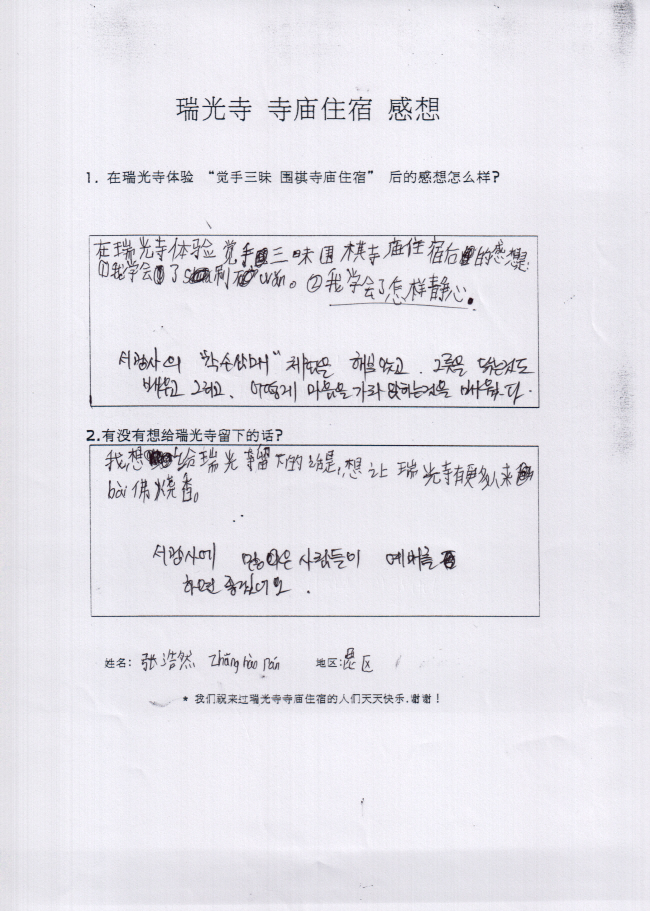 瑞光寺 寺庙住宿 感想
1. 在瑞光寺体验 “觉手三昧 围棋寺庙住宿” 后的感想怎么样?
在瑞光寺体验觉手三味围棋寺庙住宿后的感想是:
①我学会了 刷 wǎn。②我学会了怎样静心。
서광사의 "착수삼매" 체험을 해보았고. 그릇을 닦는것도
배우고 그리고, 어떻게 마음을 가라앉히는것을 배웠다.
2.有没有想给瑞光寺留下的话?
我想给瑞光寺留下的话是,想让瑞光寺有更多人来
bài佛烧香。
서광사에 많은 사람들이 예배를
하면 좋겠네요.
姓名: 张浩然 Zhāng hào rán 地区: 昆区
* 我们祝来过瑞光寺寺庙住宿的人们天天快乐.谢谢!